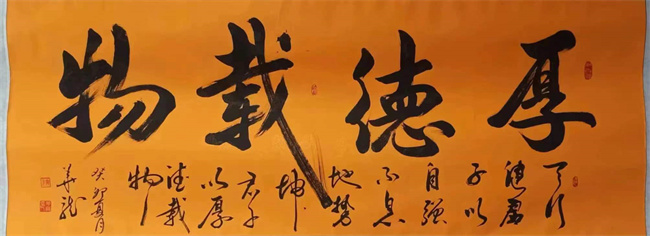 厚德載物
天行
健君
子以
自强
不息
地勢
坤
君子
以厚
德載
物
癸卯夏月
華龍